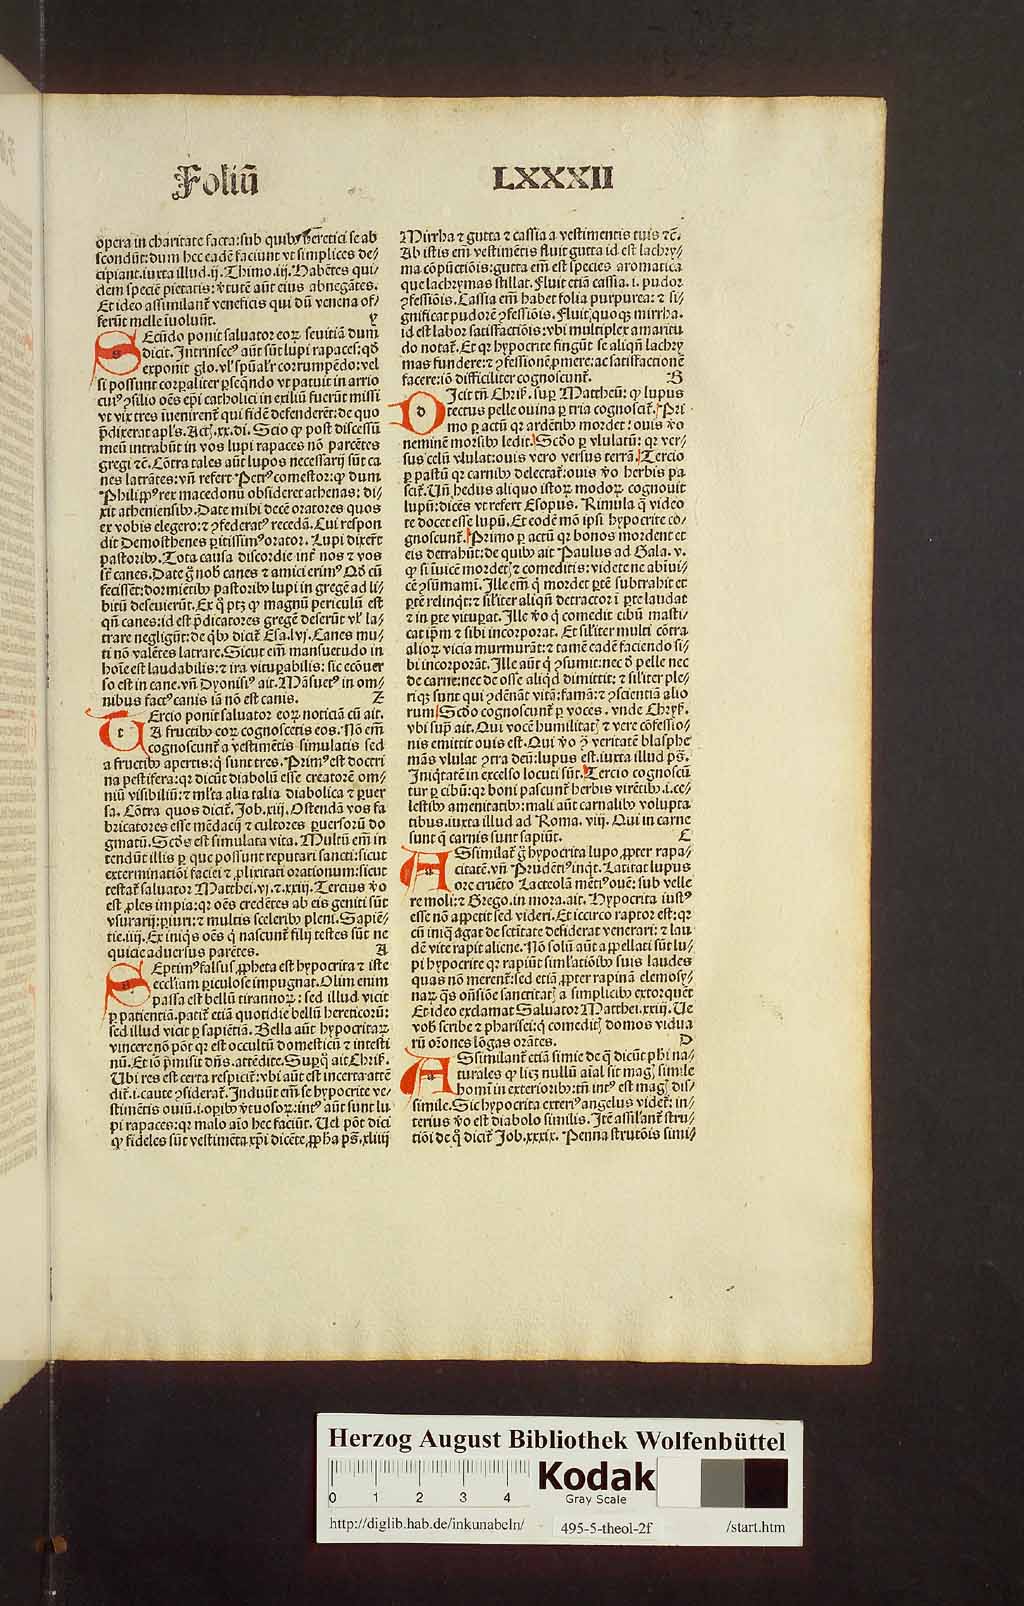 Foliū LXXXII
opera in charitate facta: sub quibꝰ heretici se ab
scondūt: dum hec eadē faciunt vt simplices de⸗
cipiant. iuxta illud. ij. Thimo. iij. Habētes qui⸗
dem speciē pietatis: v̓tutē aūt eius abnegātes.
Et ideo assimilant̄ veneficis qui dū venena of⸗
ferūt melle īuoluūt. y
SEcūdo ponit saluator eoꝝ seuitiā dum
dicit. Intrinsecꝰ aūt sūt lupi rapaces: qd̓
exponit glo. vl̓ spūal̓r corrumpēdo: vel
si possunt corꝑaliter ꝑseq̄ndo vt patuit in arrio
cuiꝰ ꝯsilio oēs ep̄i catholici in exiliū fuerūt missi
vt vix tres īuenirent̄ qui fidē defenderēt: de quo
p̄dixerat apl̓s. Act. xx. di. Scio ꝙ post discessū
meū intrabūt in vos lupi rapaces nō parcētes
gregi ⁊c̄. Cōtra tales aūt lupos necessarij sūt ca
nes latrātes: vn̄ refert Petrꝰ comestor: ꝙ dum
Philippꝰ rex macedonū obsideret athenas: di⸗
xit atheniensibꝰ. Date mihi decē oratores quos
ex vobis elegero: ⁊ ꝯfederatꝰ recedā. Cui respon
dit Demosthenes ꝑitissimꝰ orator. Lupi dixer̄t
pastoribꝰ. Tota causa discordie int̄ nos ⁊ vos
st̄ canes. Date g̊ nob̓ canes ⁊ amici erimꝰ Qd̓ cū
fecissēt: dormiētibꝰ pastoribꝰ lupi in gregē ad li⸗
bitū deseuierūt. Ex q̊ ptꝫ ꝙ magnū periculū est
qn̄ canes: id est p̄dicatores gregē deserūt vl̓ la⸗
trare negligūt: de qͥbꝰ dicit̄ Esa. lvj. Canes mu⸗
ti nō valētes latrare. Sicut em̄ mansuetudo in
hoīe est laudabilis: ⁊ ira vituꝑabilis: sic ecōuer
so est in cane. vn̄ Dyonisiꝰ ait. Māsuetꝰ in om⸗
nibus factꝰ canis iā nō est canis. Z
TErcio ponit saluator eoꝝ noticiā cū ait.
A fructibꝰ eoꝝ cognoscetis eos. Nō em̄
cognoscunt̄ a vestimētis simulatis sed
a fructibꝰ apertis: q̄ sunt tres. Primꝰ est doctri
na pestifera: qꝛ dicūt diabolū esse creatorē om⸗
niū visibiliū: ⁊ ml̓ta alia talia diabolica ⁊ ꝑuer
sa. Cōtra quos dicit̄. Job. xiij. Ostendā vos fa
bricatores esse mēdacij ⁊ cultores ꝑuersorū do
gmatū. Scd̓s est simulata vita. Multū em̄ in
tendūt illis ꝑ que possunt reputari sancti: sicut
exterminatiōi faciei ⁊ ꝓlixitati orationum: sicut
testat̄ saluator Matthei. vj. ⁊. xxiij. Tercius v̓o
est ꝓles impia: qꝛ oēs credētes ab eis geniti sūt
vsurarij: ꝑiuri: ⁊ multis sceleribꝰ pleni. Sapiē⸗
tie. iiij. Ex iniqͥs oēs q̇ nascunt̄ filij testes sūt ne
quicie aduersus parētes. A
SEptimꝰ falsus ꝓpheta est hypocrita ⁊ iste
eccl̓iam ꝑiculose impugnat. Olim enim
passa est bellū tirannoꝝ: sed illud vicit
ꝑ patientiā. patit̄ etiā quotidie bellū hereticorū:
sed illud vicit ꝑ sapiētiā. Bella aūt hypocritaꝝ
vincere nō pōt qꝛ est occultū domesticū ⁊ intesti
nū. Et iō p̄misit dn̄s. attēdite. Suꝑ q̊ ait Chriſ̓.
Ubi res est certa respicit̄: vbi aūt est incerta atte
dit̄. i. caute ꝯsiderat̄. Induūt em̄ se hypocrite ve⸗
stimētis ouiū. i. opibꝰ v̓tuosoꝝ: intꝰ aūt sunt lu
pi rapaces: qꝛ malo aīo hec faciūt. Uel pōt dici
ꝙ fideles sūt vestimēta xp̄i dicēte ꝓpha ps̄. xliiij
Mirrha ⁊ gutta ⁊ cassia a vestimentis tuis ⁊c̄.
Ab istis em̄ vestimētis fluit gutta id est lachry⸗
ma cōpūctiōis: gutta em̄ est species aromatica
que lachrymas stillat. Fluit etiā cassia. i. pudor
ꝯfessiōis. Cassia em̄ habet folia purpurea: ⁊ si⸗
gnificat pudorē ꝯfessiōis. Fluit quoqꝫ mirrha.
id est labor satisfactiōis: vbi multiplex amaritu
do notat̄. Et qꝛ hypocrite fingūt se aliqn̄ lachry
mas fundere: ⁊ ꝯfessionē ꝓmere: ac satisfactionē
facere: iō difficiliter cognoscunt̄. B
DIcit tn̄ Chriſ̓. suꝑ Mattheū: ꝙ lupus
tectus pelle ouina ꝑ tria cognoscit̄. Pri
mo ꝑ actū qꝛ ardētibꝰ mordet: ouis v̓o
neminē morsibꝰ ledit. Scd̓o ꝑ vlulatū: qꝛ ver⸗
sus celū vlulat: ouis vero versus terrā. Tercio
ꝑ pastū qꝛ carnibꝰ delectat̄: ouis v̓o herbis pa
scit̄. Un̄ hedus aliquo istoꝝ modoꝝ cognouit
lupū: dicēs vt refert Esopus. Rimula q̄ video
te docet esse lupū. Et eodē mō ipsi hypocrite co⸗
gnoscunt̄. Primo ꝑ actū qꝛ bonos mordent et
eis detrahūt: de quibꝰ ait Paulus ad Gala. v.
ꝙ si īuicē mordetꝭ ⁊ comeditis: videte ne abīui⸗
cē ꝯsūmamī. Ille em̄ q̇ mordet ꝑtē subtrahit et
ꝑtē relinqͥt: ⁊ sil̓iter aliqn̄ detractor ī ꝑte laudat
⁊ in ꝑte vituꝑat. Ille v̓o q̇ comedit cibū masti⸗
cat ip̄m ⁊ sibi incorporat. Et sil̓iter multi cōtra
alioꝝ vicia murmurāt: ⁊ tamē eadē faciendo si⸗
bi incorporāt. Ille aūt q̇ ꝯsumit: nec d̓ pelle nec
de carne: nec de osse aliqͥd dimittit: ⁊ sil̓iter ple⸗
riqꝫ sunt qui ꝯdēnāt vitā: famā: ⁊ ꝯscientiā alio
rum. Scd̓o cognoscunt̄ ꝑ voces. vnde Chryſ̓.
vbi sup̄ ait. Qui vocē humilitatꝭ ⁊ vere cōfessio⸗
nis emittit ouis est. Qui v̓o ꝯ̄ veritatē blasphe
mās vlulat ꝯtra deū: lupus est. iuxta illud ps̄.
Iniqͥtatē in excelso locuti sūt. Tercio cognoscū
tur ꝑ cibū: qꝛ boni pascunt̄ herbis virētibꝰ. i. ce⸗
lestibꝰ amenitatibꝰ: mali aūt carnalibꝰ volupta
tibus. iuxta illud ad Roma. viij. Qui in carne
sunt q̄ carnis sunt sapiūt. C
ASsimilat̄ g̊ hypocrita lupo ꝓpter rapa⸗
citatē. vn̄ Prudētiꝰ inqͥt. Latitat lupus
ore cruēto Lacteolā mētiꝰ ouē: sub velle
re moli: ⁊ Grego. in mora. ait. Hypocrita iustꝰ
esse nō appetit sed videri. Et iccirco raptor est: qꝛ
cū iniq̄ agat de sctītate desiderat venerari: ⁊ lau
dē vite rapit aliene. Nō solū aūt appellati sūt lu⸗
pi hypocrite qꝛ rapiūt siml̓atiōibꝰ suis laudes
quas nō merent̄: sed etiā ꝓpter rapinā elemosy⸗
naꝝ q̄s on̄siōe sanctitatꝭ a simplicibꝰ extorquēt
Et ideo exclamat Saluator Matthei. xxiij. Ue
vob̓ scribe ⁊ pharisei: q̇ comeditꝭ domos vidua
rū or̄ones lōgas orātes. D
ASsimilant̄ etiā simie de q̄ dicūt ph̓i na⸗
turales ꝙ licꝫ nullū aīal sit magꝭ simile
homī in exterioribꝰ: tn̄ intꝰ est magꝭ dis⸗
simile. Sic hypocrita exteriꝰ angelus videt̄: in⸗
terius v̓o est diabolo similis. Itē assil̓ant̄ stru⸗
tiōi de q̊ dicit̄ Job. xxxix. Penna strutōis simi⸗
Herzog August Bibliothek Wolfenbüttel
0 1 2 3 4
Kodak
Gray Scale
http://diglib.hab.de/inkunabeln/ 495-5-theol-2f /start.htm